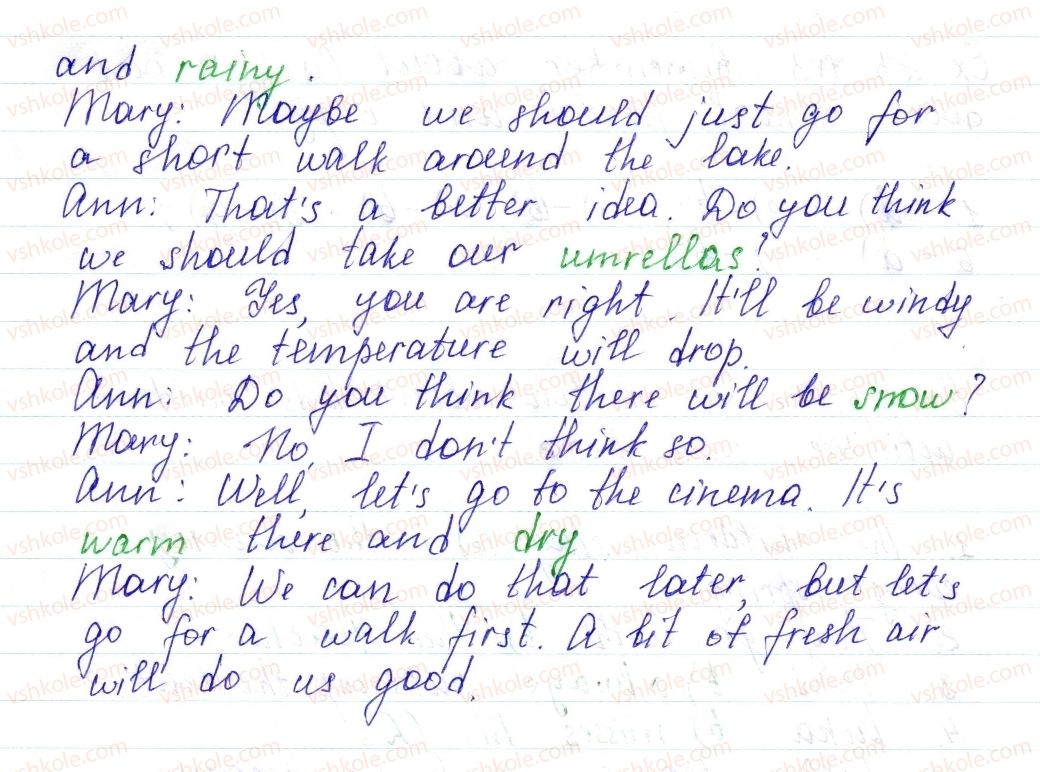 and rainy.
Mary: Maybe we should just go for
a short walk around the lake.
Ann: That's a better idea. Do you think
we should take our umrellas?
Mary: Yes, you are right. It'll be windy
and the temperature will drop.
Ann: Do you think there will be snow?
Mary: No, I don't think so.
Ann: Well, let's go to the cinema. It's
warm there and dry.
Mary: We can do that later, but let's
go for a walk first. A bit of fresh air
will do us good.
vshkole.com